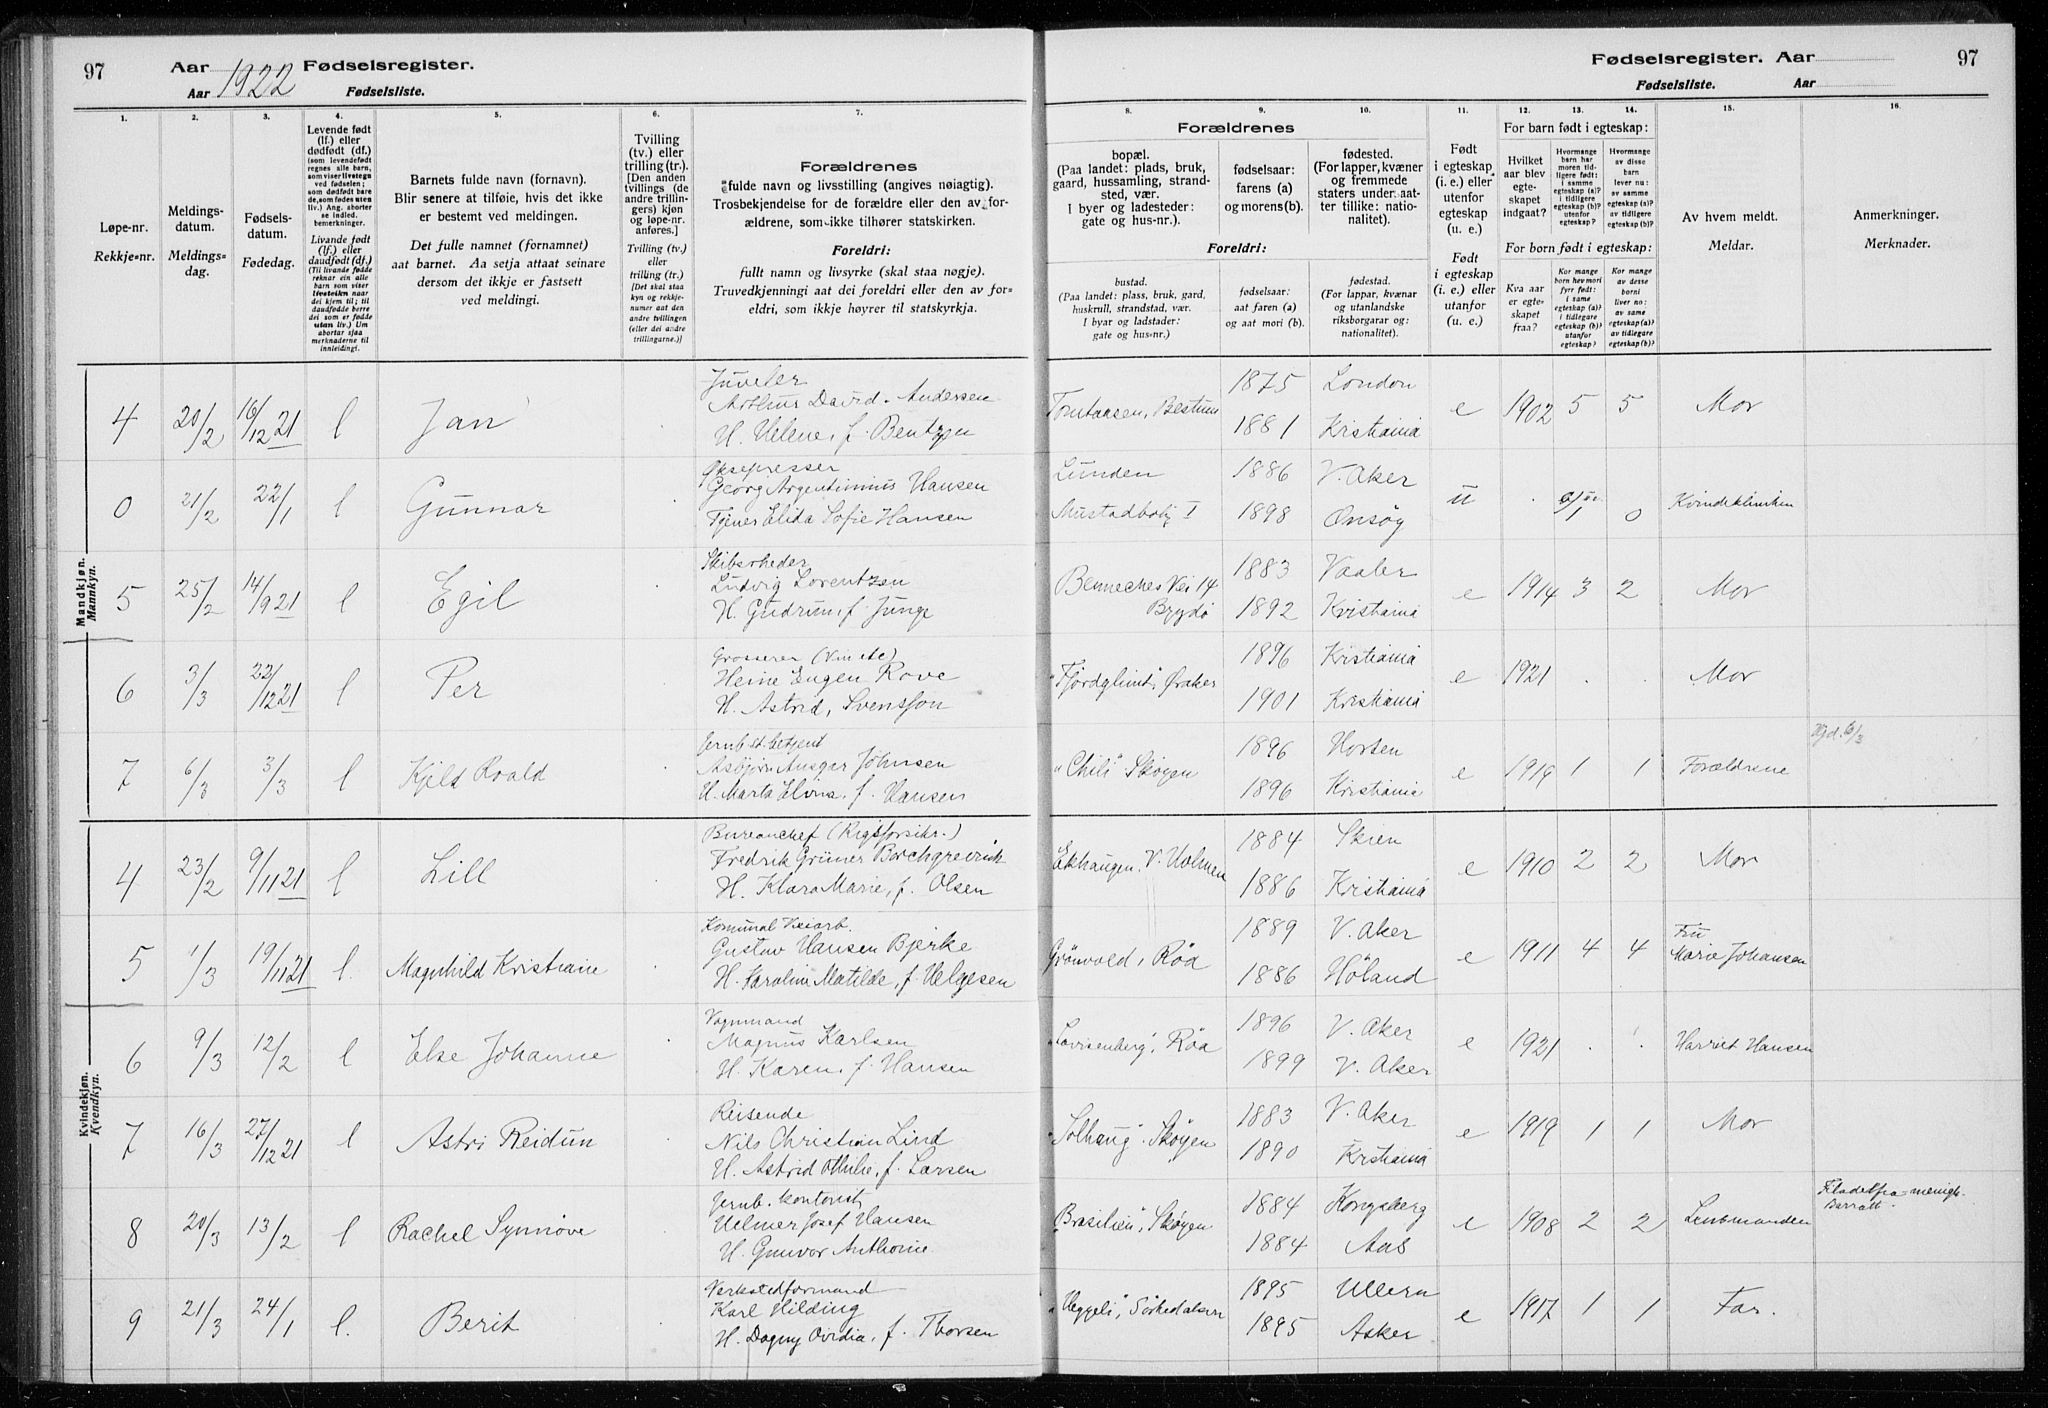 97 Aar 1922 Fødselsregister.
Aar Fødselsliste.
Fødselsregister. Aar 97
Fødselsliste. Aar
1. 2. 3. 4. 5. 6. 7. 8. 9. 10. 11. 12. 13. 14. 15. 16.
Løpe-nr.
Rekkje-nr.
Meldings-
datum.
Meldings-
dag.
Fødsels-
datum.
Fødedag.
Levende født
(lf.) eller
dødfødt (df.)
(som levendefødt
regnes alle barn,
som viser livstegn
ved fødselen;
som dødfødt bare
de, som fødes uten
liv.) Ang. aborter
se indled.
bemerkninger.
Livande født
(lf.) eller
daudfødt (df.)
(Til livande fødde
reknar ein alle
barn som viser
livsteikn naar
dei kjem til; til
daudfødde berre
dei som er fødde
utan liv.) Um
abortar sjaa
merknaderne til
innleidingi.
Barnets fulde navn (fornavn).
Blir senere at tilføie, hvis det ikke
er bestemt ved meldingen.
Det fulle namnet (fornamnet)
aat barnet. Aa setja attaat seinare
dersom det ikkje er fastsett
ved meldingi.
Tvilling
(tv.) eller
trilling (tr.)
[Den anden
tvillings (de
andre trillin-
gers) kjøn
og løpe-nr.
anføres.]
Tvilling (tv.)
eller
trilling (tr.)
[Det skal staa
kyn og rekkje-
numer aat den
andre tvillingen
(eller dei andre
trillingarne.)]
Forældrenes
fulde navn og livsstilling (angives nøiagtig).
Trosbekjendelse for de forældre eller den av for-
ældrene, som ikke tilhører statskirken.
Foreldri:
fullt namn og livsyrke (skal staa nøgje).
Truvedkjenningi aat dei foreldri eller den av for-
eldri, som ikkje høyrer til statskyrkja.
Forældrenes
bopæl.
(Paa landet: plads, bruk,
gaard, hussamling, strand-
sted, vær.
I byer og ladesteder:
gate og hus-nr.).
fødselsaar:
farens (a)
og morens (b).
fødested.
(For lapper, kvæner
og fremmede
staters under.aat-
ter tillike: natio-
nalitet).
Foreldri:
bustad.
(Paa landet: plass, bruk, gard,
huskrull, strandstad, vær.
I byar og ladstader:
gate og hus-nr.)
fødselsaar:
aat faren (a)
og aat mori (b).
fødestad.
(For lappar, kvænar
og utanlandske
riksborgarar og:
nationalitet).
Født
i egteskap
(i. e.) eller
utenfor
egteskap
(u. e.)
Født
i egteskap
(i. e.) eller
utanfor
(u. e.)
For barn født i egteskap:
Hvilket
aar blev
egte-
skapet
indgaat?
Hvormange
barn har
moren tid-
ligere født:
i samme
egteskap (a)?
i tidligere
egteskap (b)?
utenfor
egteskap?
Hvormange
av disse
barn
lever nu:
av samme
egteskap (a)?
av tidligere
egteskap (b)?
For born født i egteskap:
Kva aar
er egte-
skapet
fraa?
Kor mange
born hev mori
fyrr født:
i same
egteskap (a)?
i tidlegare
egteskap (b)?
utanfor
egteskap?
Kor mange
av desse
borni
liver no:
av same
egteskap (a)?
av tidlegare
egteskap (b)?
Av hvem meldt.
Meldar.
Anmerkninger.
Merknader.
Mandkjøn.
Mannkyn.
Juveler
4 20/2 16/12 21 l Jan Arthur David Andersen
H. Helene, f. Bentzen
Bestum 1875 London e 1902 5 5 Mor
1881 Kristiania
0 21/2 22/1 l Gunnar Georg Argentinius Hansen
Tjener Elida Sofie Hansen
Lunden 1886 V. Aker u 0 Kvindekliniken
Mustadbolig I 1898 Onsøy
Skibsrheder
5 25/2 14/9 21 l Egil Ludvig Lorentzen
H. Gudrun, f. Junge
Bennechesvei 14 1883 Vaaler e 1914 3 2 Mor
Bygdø 1892 Kristiania
Grosserer (Vin etc)
6 3/3 22/12 21 l Per Heine Eugen Rove
H. Astrid, Svensson
"Fjordglimt", Øraker 1896 Kristiania e 1921 . . Mor
1901 Kristiania
Jernb.st.betjent
7 6/3 3/3 l Kjeld Roald Asbjørn Ansgar Johnsen
H. Marta Elvira, f. Hansen
"Chili" Skøyen 1896 Horten e 1919 1 1 Forældrene
1896 Kristiania
Kvindekjøn.
Kvendkyn.
Bureauchef (Rigsforsikr.)
4 23/2 9/11 21 l Lill Fredrik Grüner Borchgrevink
H. Klara Marie, f. Olsen
Ekhaugen, V. Holmen 1884 Skien e 1910 2 2 Mor
1886 Kristiania
Komunal Veiarb.
5 1/3 19/11 21 l. Magnhild Kristiane Gustav Hansen Bjerke
H. Karoline Matilde, f. Helgesen
Grönvold, Røa 1889 V. Aker e 1911 4 4 Fru
Marie Johansen
1886 Høland
Vognmand
6 9/3 12/2 l Else Johanne Magnus Karlsen
H. Karen, f. Hansen
"Lovisenberg", Røa 1896 V. Aker e 1921 . . Harriet Hansen
1899 V. Aker
Reisende
7 16/3 27/12 21 l Astri Reidun Nils Christian Lind
H. Astrid Othilie, f. Larsen
"Solhaug" Skøyen 1883 V. Aker e 1919 1 1 Mor
1890 Kristiania
Jernb. kontorist
8 20/3 13/2 l Rachel Synnöve Helmer Josef Hansen
H. Gunvor Anthonie
"Brasilien", Skøyen 1884 Kongsberg e 1908 2 2 Lensmanden
1884 Aas
Filadelfia-menigh.
Barratt.
Verkstedformand
9 21/3 24/1 l. Berit Karl Hilding
H. Dagny Ovidia, f. Thorsen
"Heggeli", Sørkedalsvn 1895 Ullern e 1917 1 1 Far.
1895 Asker